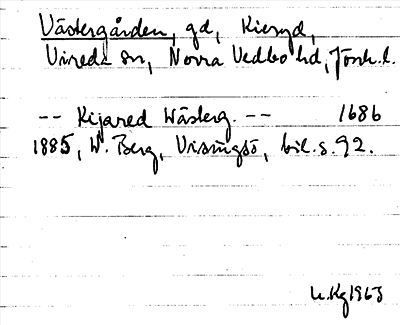 Västergården, gd, Kieryd,
Vireda sn, Norra Vedbo hd, Jönk.l.
-- Kijared Wästerg. -- 1686
1885, W. Berg, Visingsö, bil.s.92.
1963